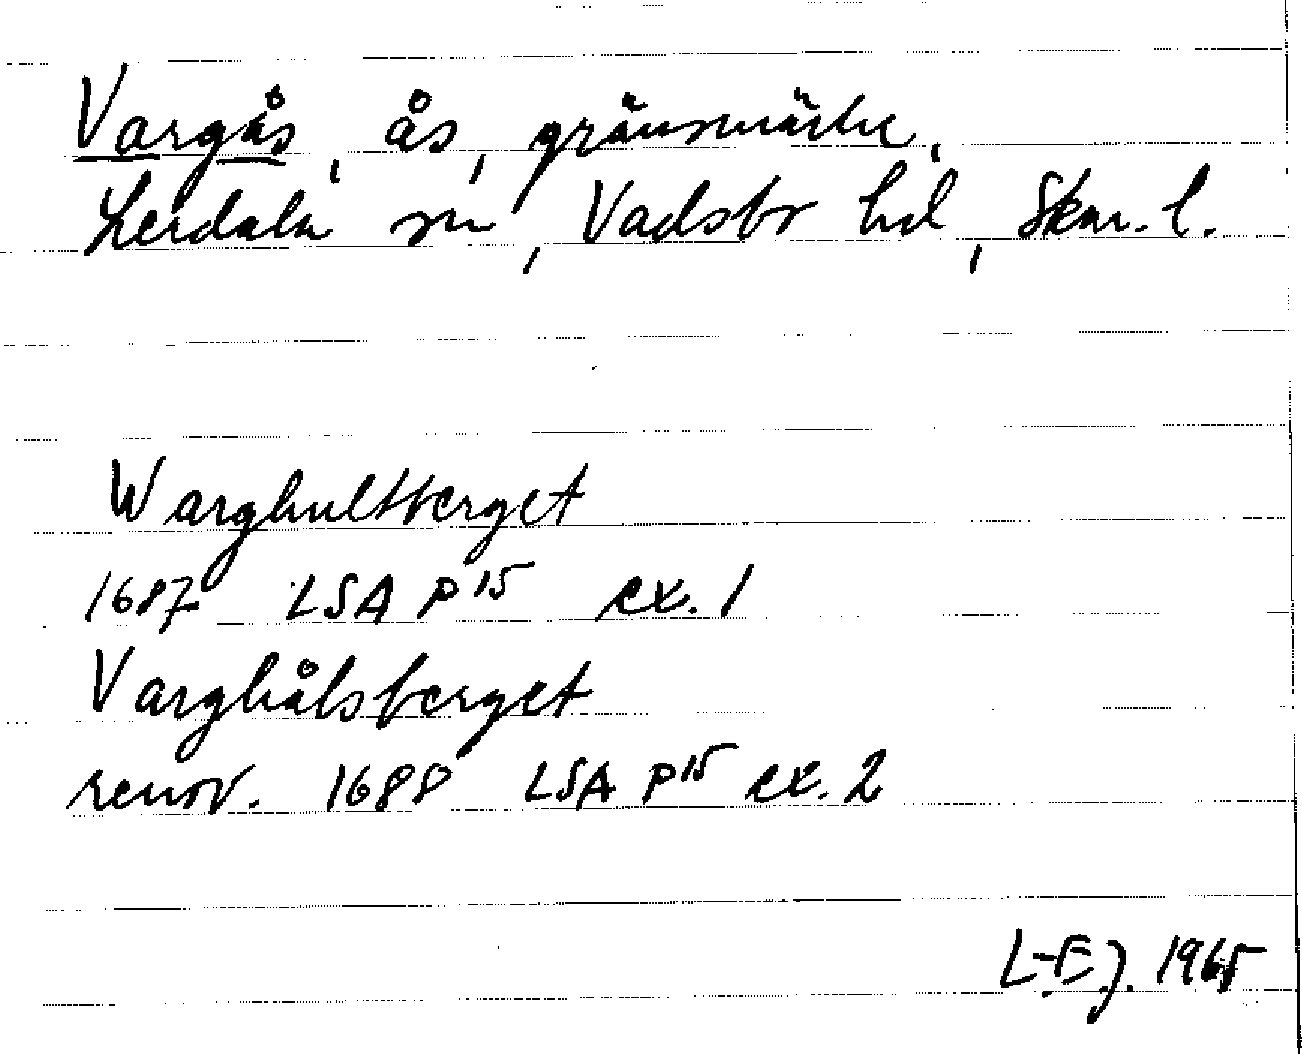 Vargås, ås, gränsmärke,
Lerdala sn, Vadsbo hd, Skar. l.
Warghultberget
1687 LSA P 15 ex. 1
Varghålsberget
renov. 1688 LSA P 15 ex. 2
L-E J. 1965